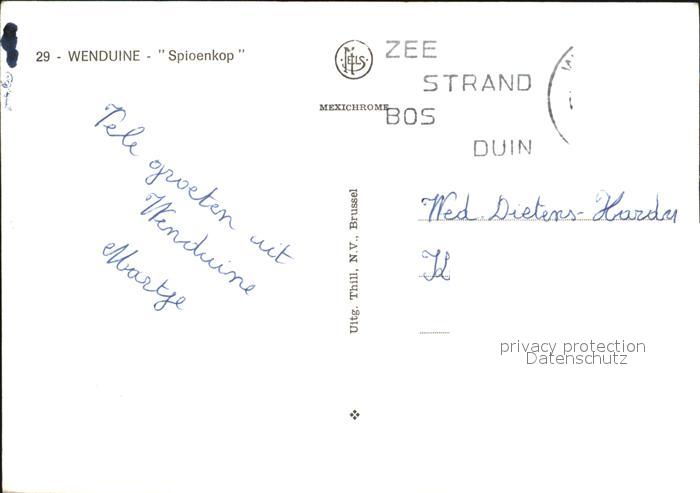 29 - WENDUINE - " Spioenkop "
NELS
MEXICHROME
ZEE
STRAND
BOS
DUIN
Vele groeten uit
Wenduine
Martje
Uitg. Thill, N.V., Brussel
Wed. Dietens-
privacy protection
Datenschutz